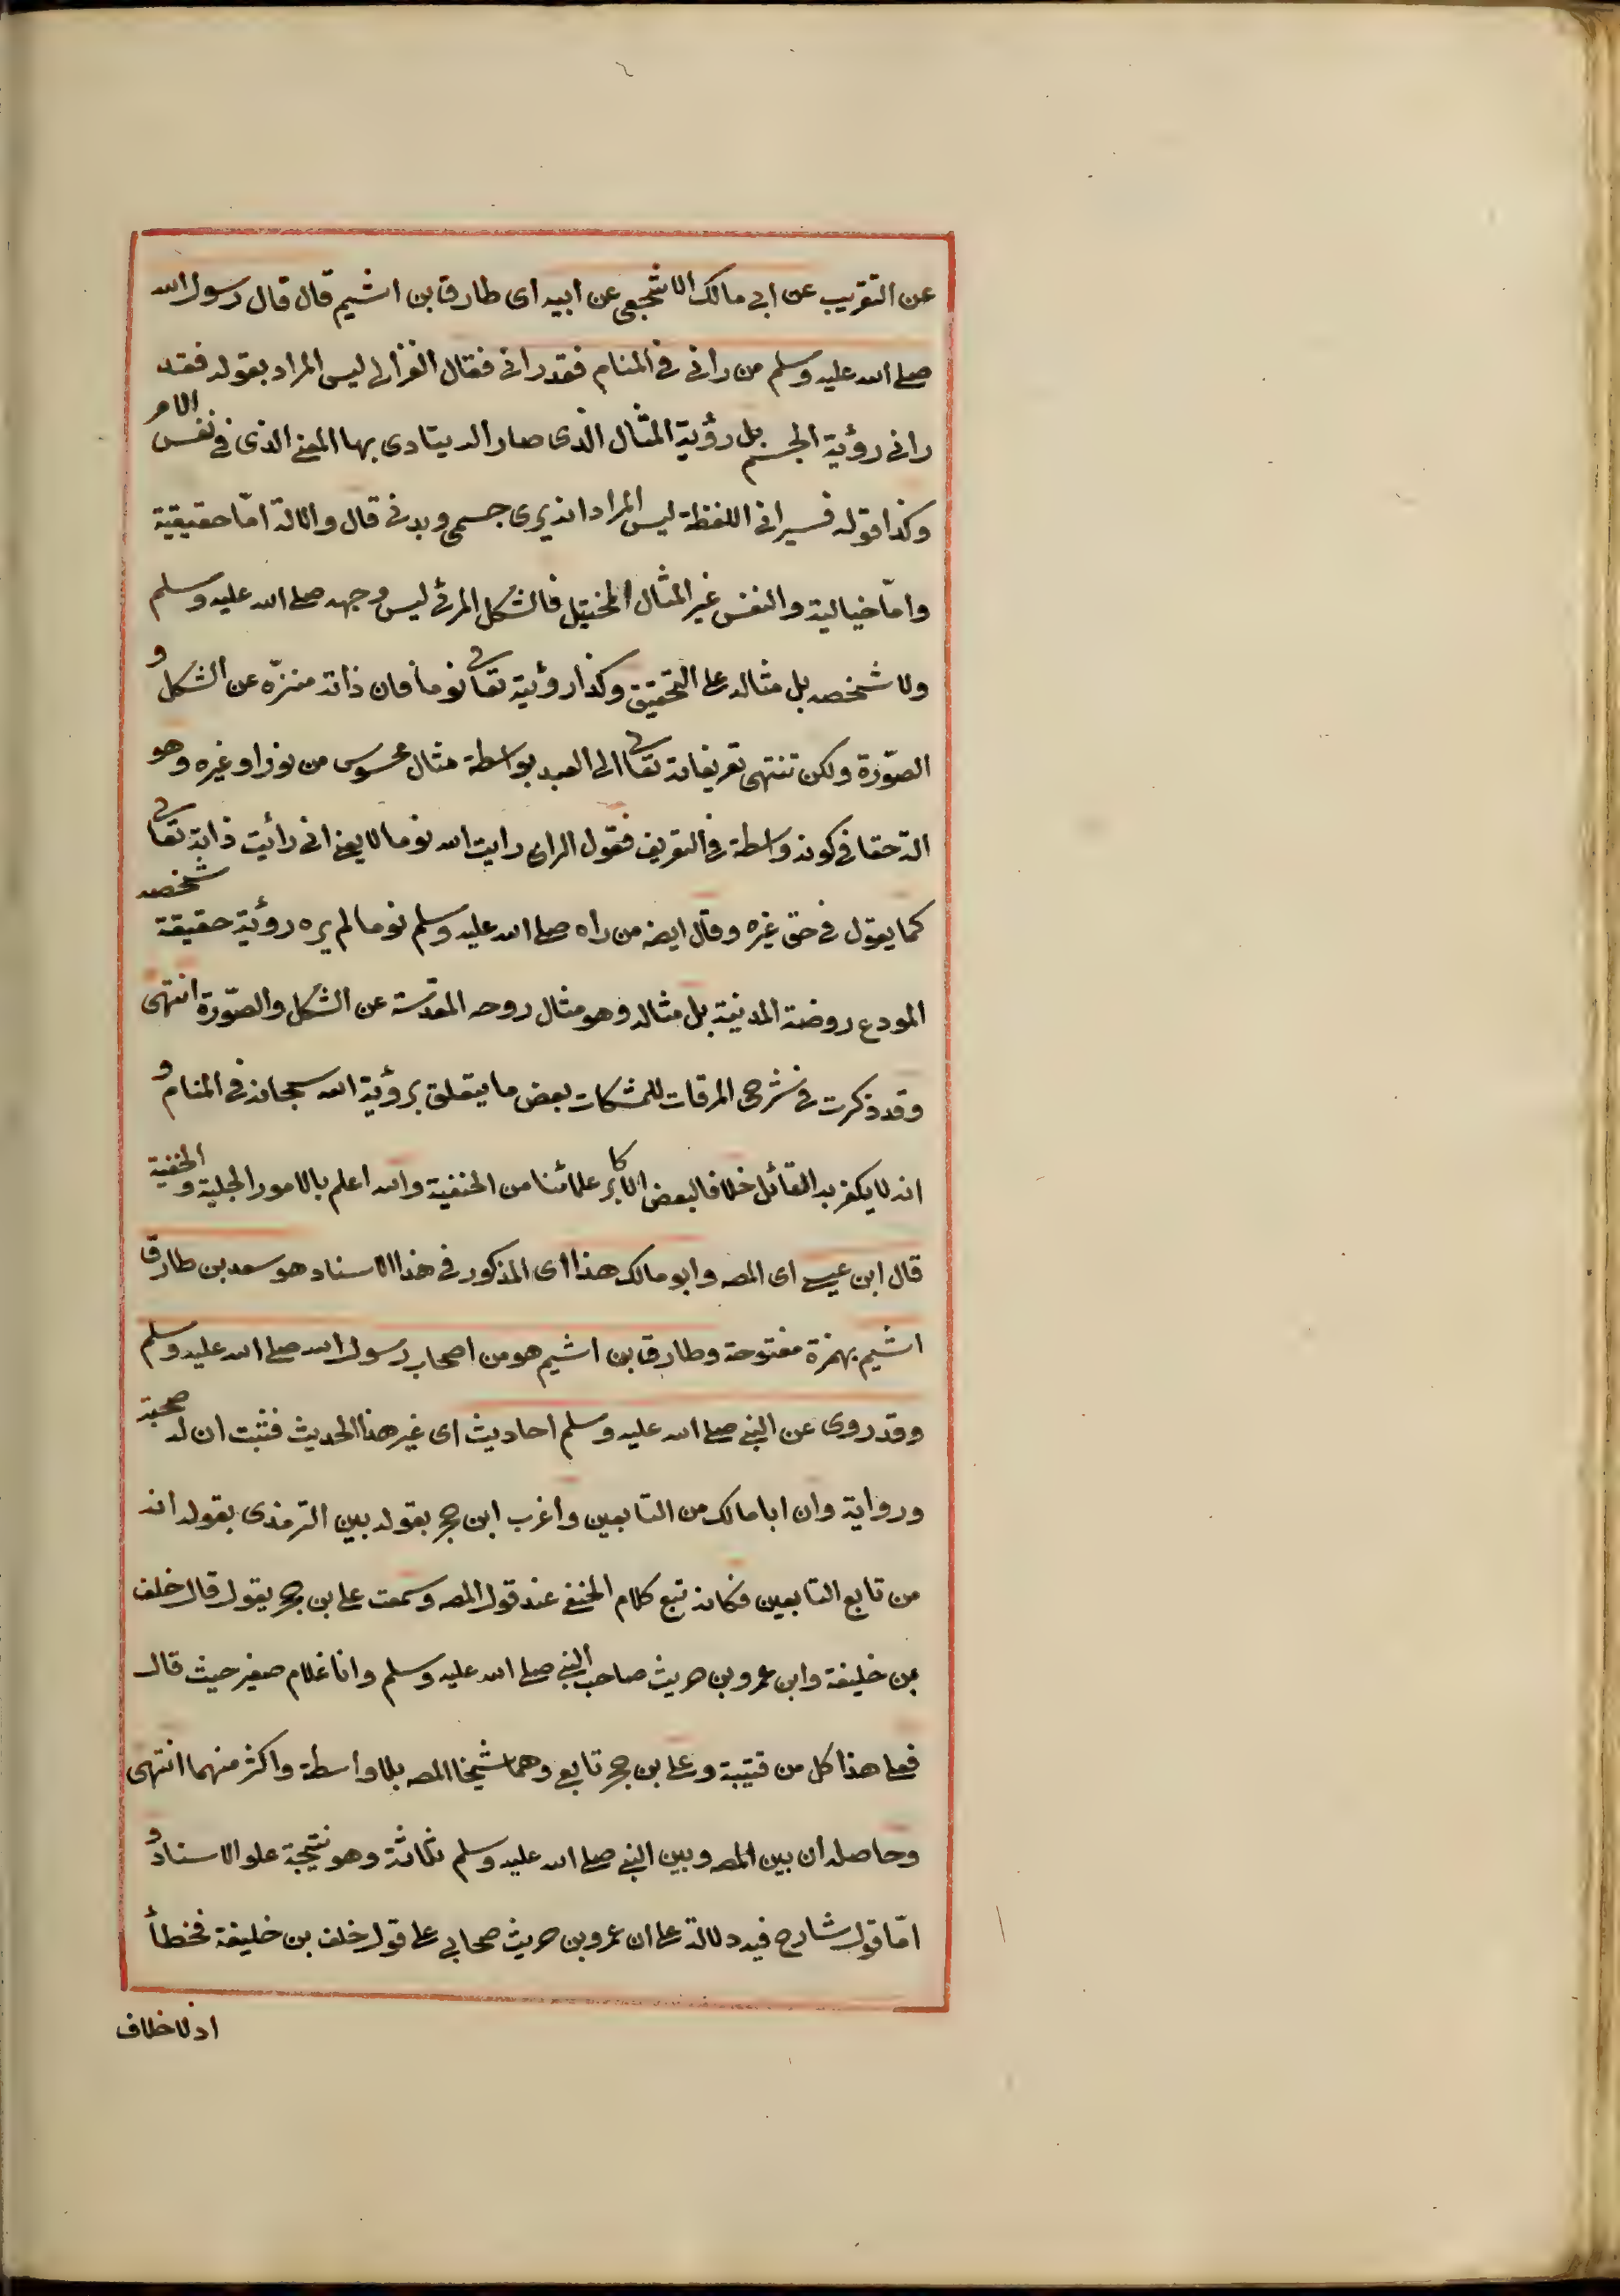 عن التقريب عن ابى مالك الاشجعى عن ابيه اى طارق بن اشيم قال قال رسول الله
صلى الله عليه وسلم من رانى فى المنام فقد رانى فقال الغزالى ليس المراد بقوله فقد
رانى رؤية الجسم بل رؤية المثال الذى صار الة يتادى بها المعنى الذى فى نفس الامر
وكذا قوله فسيرانى اللفظة ليس المراد انه يرى جسمى وبدنى قال والالة امّا حقيقية
وامّا خيالية والنفس غير المثال المخيّل فالشكل المرئى ليس وجهه صلى الله عليه وسلم
ولا شخصه بل مثاله على التحقيق وكذا رؤيته تعالى نوما فان ذاته منزّه عن الشكل و
الصّورة ولكن تنتهى تعريفاته تعالى الى العبد بواسطة مثال محسوس من نور او غيره وهو
الة حقا فى كونه واسطة فى التعريف فقول الرائى رايت الله نوما لا يعنى انى رأيت ذاته تعالى
كما يقول فى حق غيره وقال ايضه من راه صلى الله عليه وسلم نوما لم يره رؤية حقيقة شخصه
المودع روضة المدينة بل مثاله وهو مثال روحه المقدّسة عن الشكل والصّورة انتهى
وقد ذكرت فى شرحى المرقات للمشكات بعض ما يتعلق برؤية الله سبحانه فى المنام و
انه لا يكفر به القائل خلافا لبعض الاكابر علمائنا من الحنفية والله اعلم بالامور الجلية والخفية
قال ابن عيسى اى المصه وابو مالك هذا اى المذكور فى هذا الاسناد هو سعد بن طارق
اشيم بهمزة مفتوحة وطارق بن اشيم هو من اصحاب رسول الله صلى الله عليه وسلم
وقد روى عن النبى صلى الله عليه وسلم احاديث اى غير هذا الحديث فثبت ان له صحبة
ورواية وان ابا مالك من التابعين واغرب ابن حجر بقوله بين الترمذى بقوله انه
من تابع التابعين فكانه تبع كلام الحنفى عند قول المصه وسمعت على بن حجر يقول قال خلف
بن خليفة وابن عمرو بن حريث صاحب النبى صلى الله عليه وسلم وانا غلام صغير حيث قال
فعلى هذا كل من قتيبة وعلى بن حجر تابعى وهما شيخا المصه بلا واسطة واكثر منهما انتهى
وحاصله ان بين المصه وبين النبى صلى الله عليه وسلم ثلاثة وهو نتيجة علو الاسناد و
امّا قول شارح فيه دلالة على ان عمرو بن حريث صحابى على قول خلف بن خليفة فخطأ
اذ لا خلاف